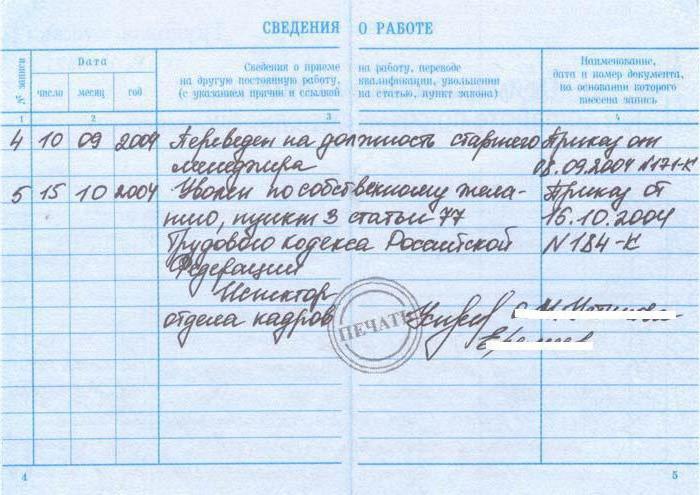 СВЕДЕНИЯ О РАБОТЕ
№ записи
Дата
число месяц год
Сведения о приеме на работу, переводе
на другую постоянную работу, квалификации, увольнении
(с указанием причин и ссылкой на статью, пункт закона)
Наименование,
дата и номер документа,
на основании которого
внесена запись
1 2 3 4
4 10 09 2004 Переведен на должность старшего Приказ от
менеджера 08.09.2004 №171-К
5 15 10 2004 Уволен по собственному жела- Приказ от
нию, пункт 3 статьи 77 15.10.2004
Трудового кодекса Российской N184-К
Федерации
Инспектор
отдела кадров
ПЕЧАТЬ
4 5